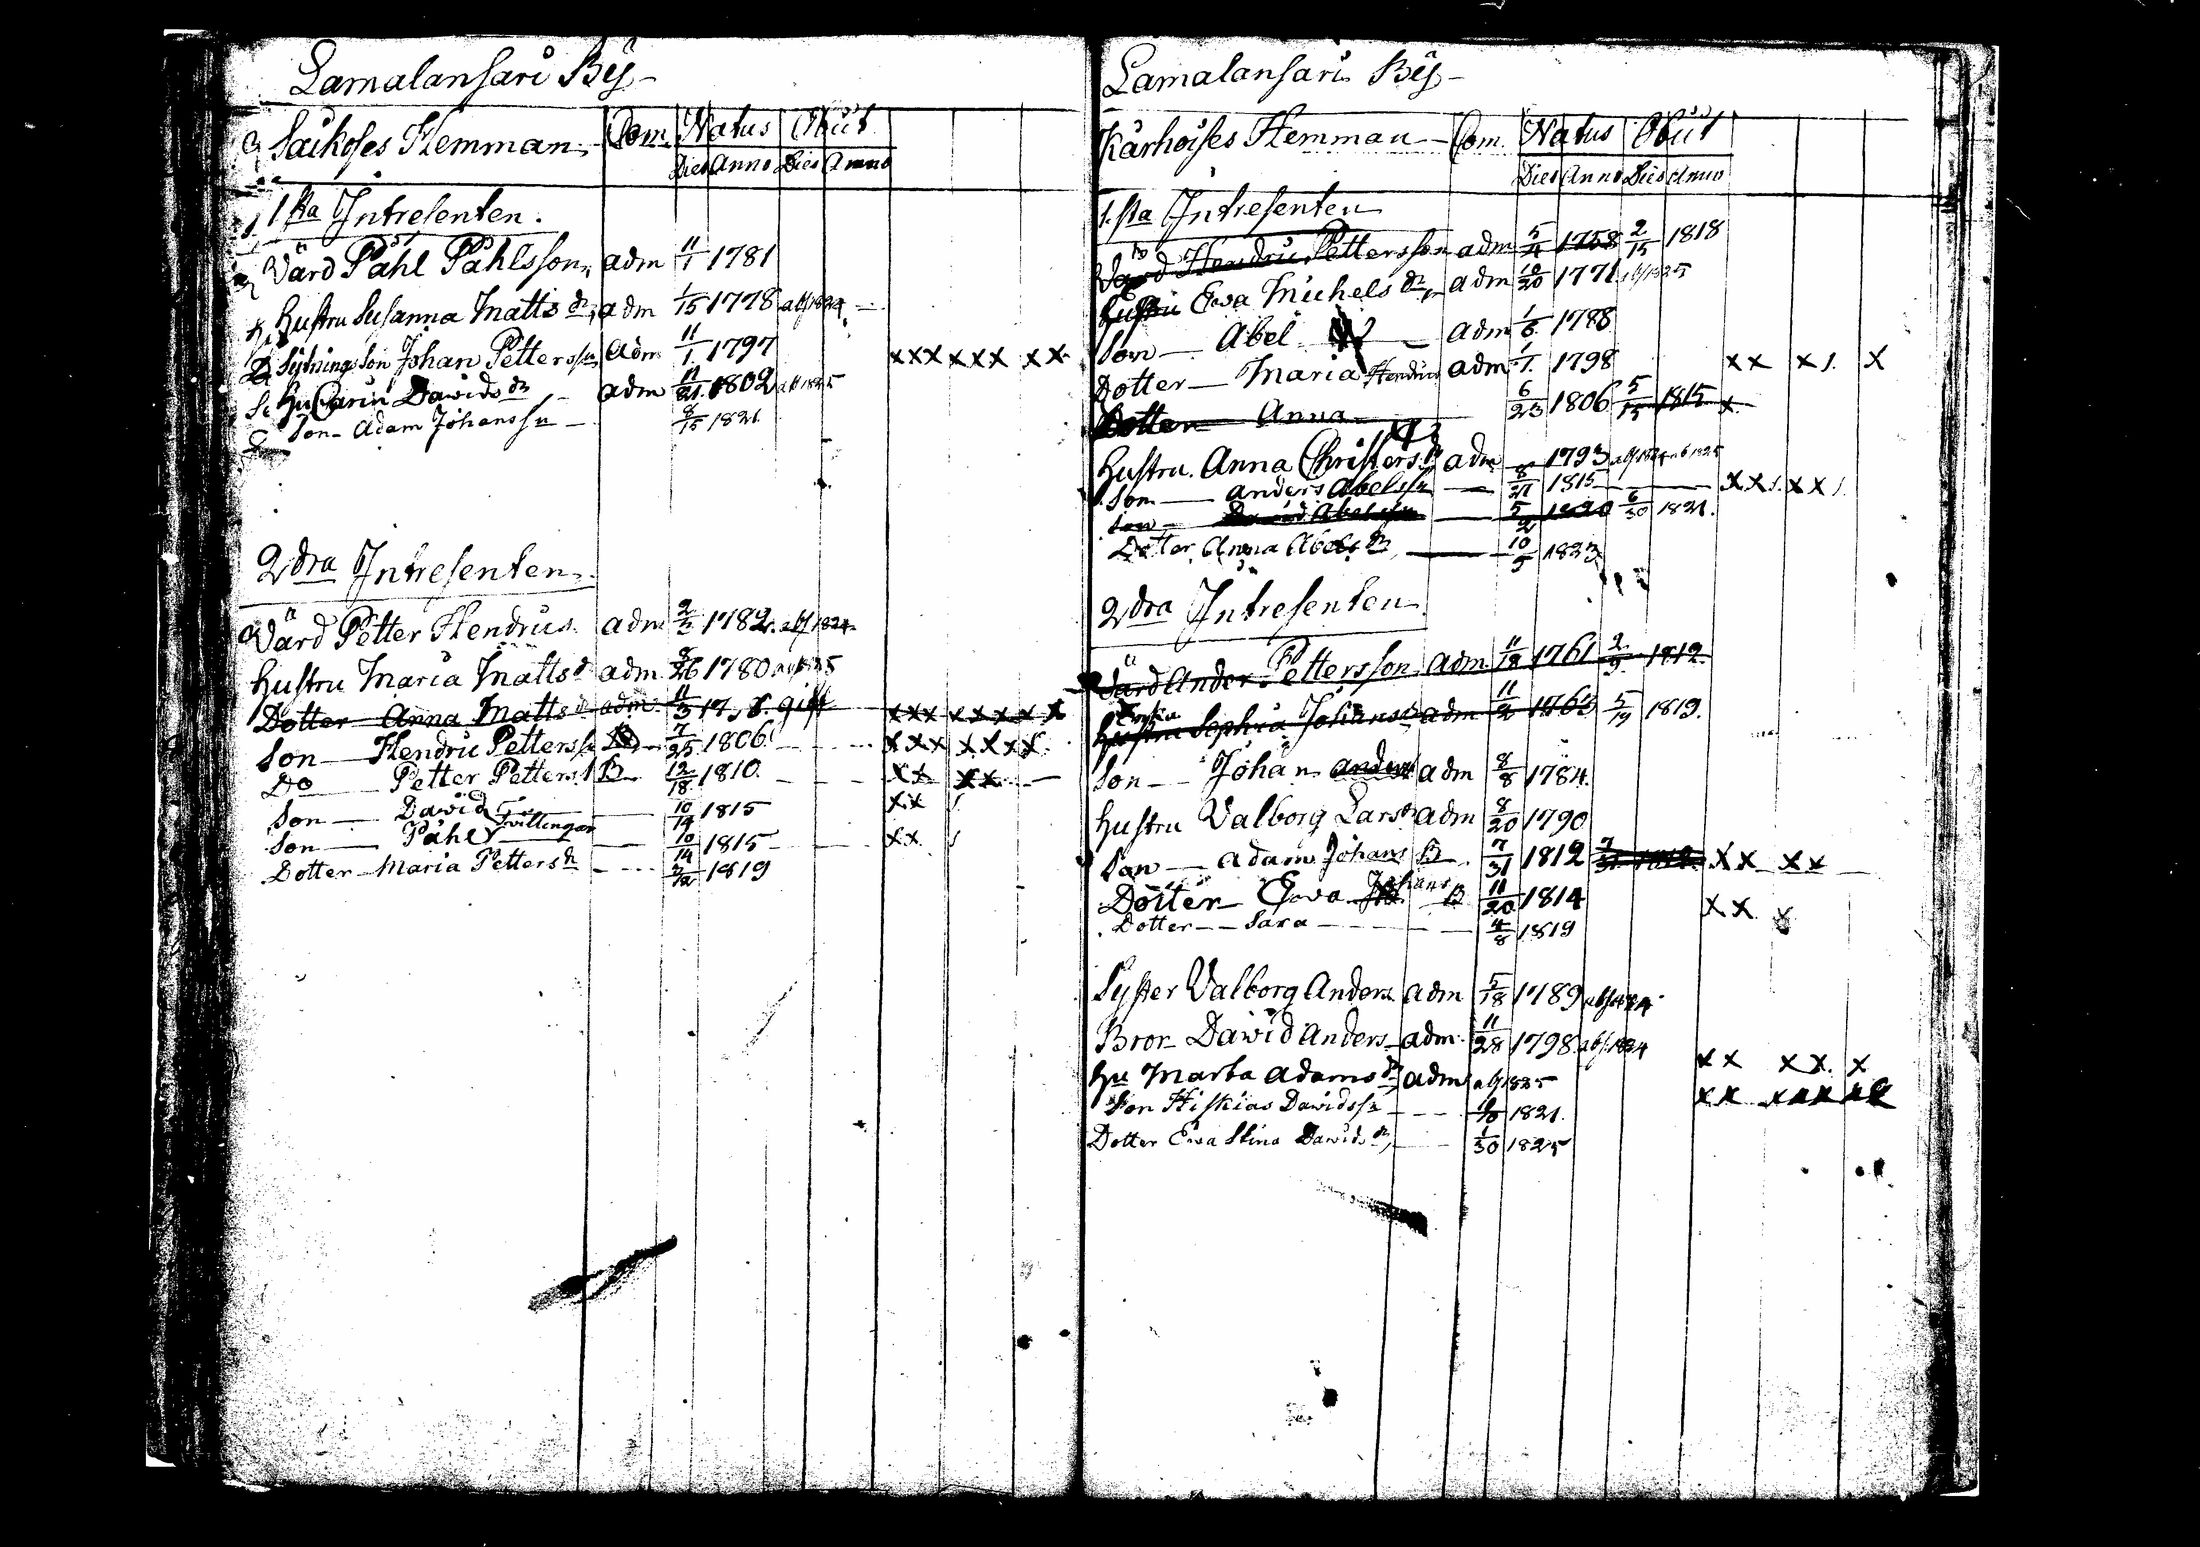 Lamalansari Bÿ
Saikoses Hemman Com. Natus Obiit
Dies Anno Dies Anno
1 sta Intresenten.
Vard Påhl Påhlsson adm 11/1 1781
Hustru Susanna Matts dr adm 1/15 1778 abs 1824
Sytnings Son Johan Petterssn adm 11/1 1797 xxx xxx xx
Hu Carin Dawids dr adm 11/21 1802 abs 1825
Son Adam Johanssn 8/15 1821
2 dra Intresenten
Värd Petter Hendrics adm 2/2 1782 abs 1824
Hustru Maria Matts dr adm 8/26 1780 abs 1825
Dotter Anna Matts dr adm 11/3 gift xxx xxxx x
Son Hendric Petterss 7/25 1806 xxx xxxx
Do Petter Petterss B 12/18 1810 xx xx
Son Dawid 10/14 1815 xx
Tvillingar
Son Påhl 10/14 1815 xx
Dotter Maria Petters dr 2/12 1819
Lamalansari Bÿ
Karhoises Hemman Com. Natus Obiit
Dies Anno Dies Anno
1. sta Intresenten
Värd Hendric Pettersson adm 5/4 1758 2/15 1818
Hustru Ewa Michels dr adm 10/20 1771 abs 1825
Son Abel adm 1/6 1788
Dotter Maria Hendrics adm 1/1 1798 xx x x
Dotter Anna 6/23 1806 5/15 1815 x
Hustru Anna Christers dr adm 1793 abs 1824 ab 1825
Son Anders Abelssn 8/21 1815 xx xx
Son Abelssn 5/2 1820 6/30 1821.
Dotter Anna Abels dr 10/5 1823
2 dra Intresenten
Värd Ander Pettersson adm 11/18 1761 2/9 1812
Enka
Hustru Sophia Johans dr adm 11/2 1763 5/19 1819.
Son Johan Anders adm 8/8 1784.
Hustru Valborg Lars dr adm 8/20 1790
Son Adam Johans B 7/31 1812 xx xx
Dotter Ewa Johans B 11/20 1814 xx x
Dotter Sara 4/8 1819
Syster Valborg Anders adm 5/18 1789 abs 1824
Bror Dawid Anders adm 11/28 1798 abs 1824
Hu Marta Adams dr adm abs 1825 xx xx x
Son Hiskias Dawidssn 1821. xx
Dotter Ewa Stina Dawids dr 1/30 1825